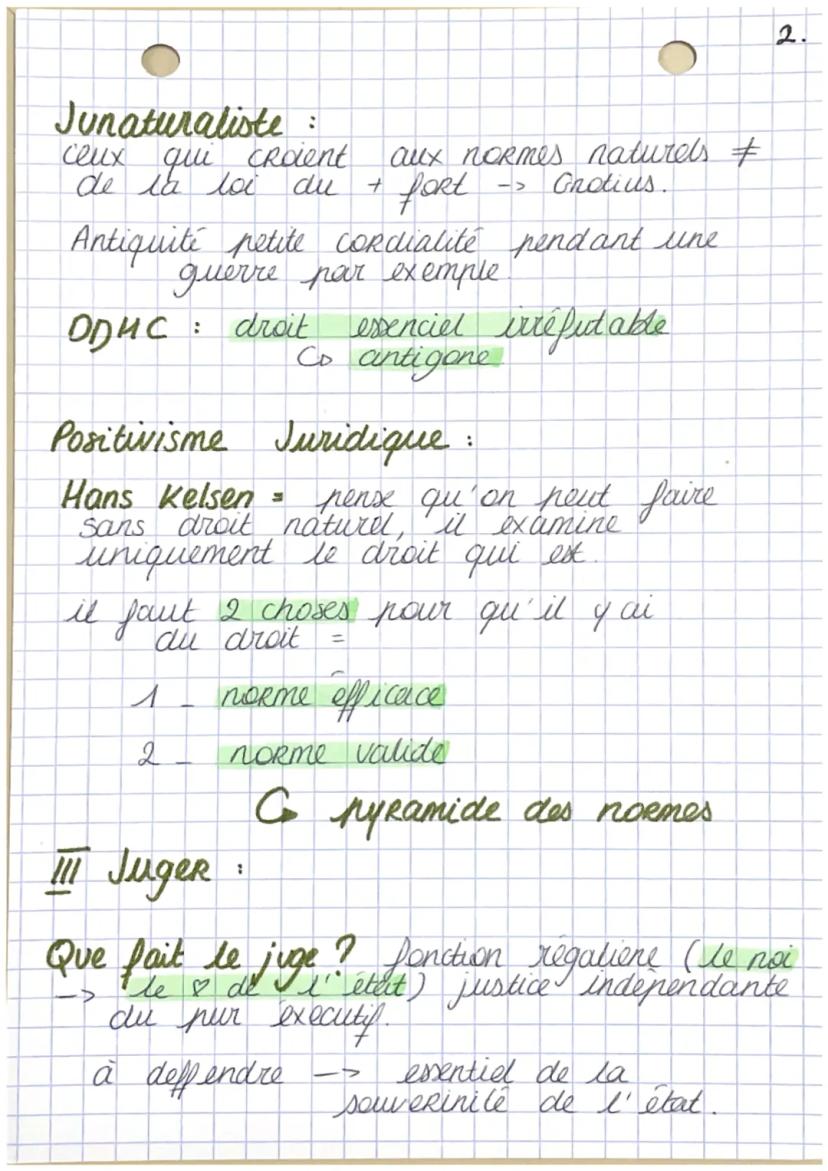 2.
Junaturaliste :
ceux qui croient aux normes naturels ≠
de la loi du + fort -> Grotius.
Antiquité petite cordialité pendant une
guerre par exemple.
DDHC : droit essenciel irréfutable
↳ antigone
Positivisme Juridique :
Hans Kelsen = pense qu'on peut faire
sans droit naturel, il examine
uniquement le droit qui est.
il faut 2 choses pour qu'il y ai
du droit =
1 - norme efficace
2 - norme valide
↳ pyramide des normes
III Juger :
Que fait le juge ? fonction régaliene (le roi
-> le ♡ de l'état) justice indépendante
du pvr éxecutif.
à deffendre -> essentiel de la
souverinité de l'état.